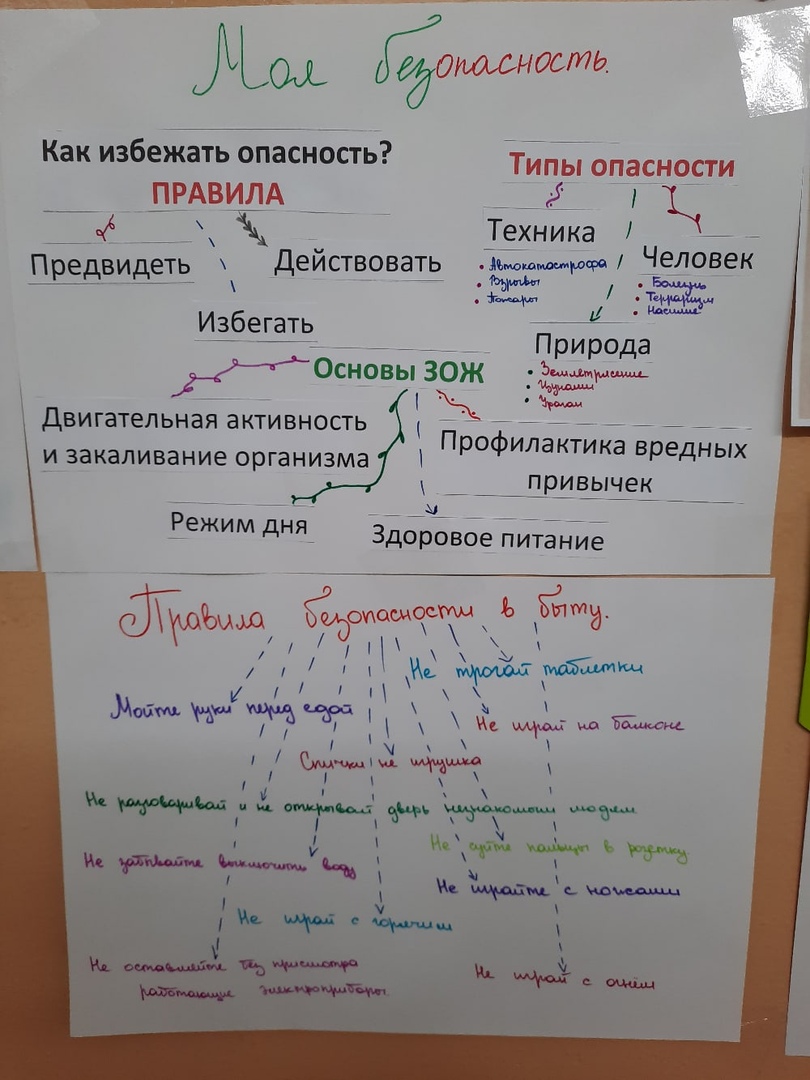 Моя безопасность.
Как избежать опасность?
ПРАВИЛА
Предвидеть
Действовать
Избегать
Типы опасности
Техника
Автокатастрофа
Взрывы
Пожары
Человек
Болезнь
Терраризм
Насилие
Природа
Землетрисение
Цунами
Ураган
Основы ЗОЖ
Двигательная активность
и закаливание организма
Профилактика вредных
привычек
Режим дня
Здоровое питание
Правила безопасности в быту.
Не трогай таблетки
Мойте руки перед едой
Не играй на балконе
Спички не игрушка
Не разговаривай и не открывай дверь незнакомым людям
Не суйте пальцы в розетку.
Не забывайте выключить воду
Не играйте с ножами
Не играй с горячим
Не оставляйте без присмотра
работающие электроприборы.
Не играй с огнём